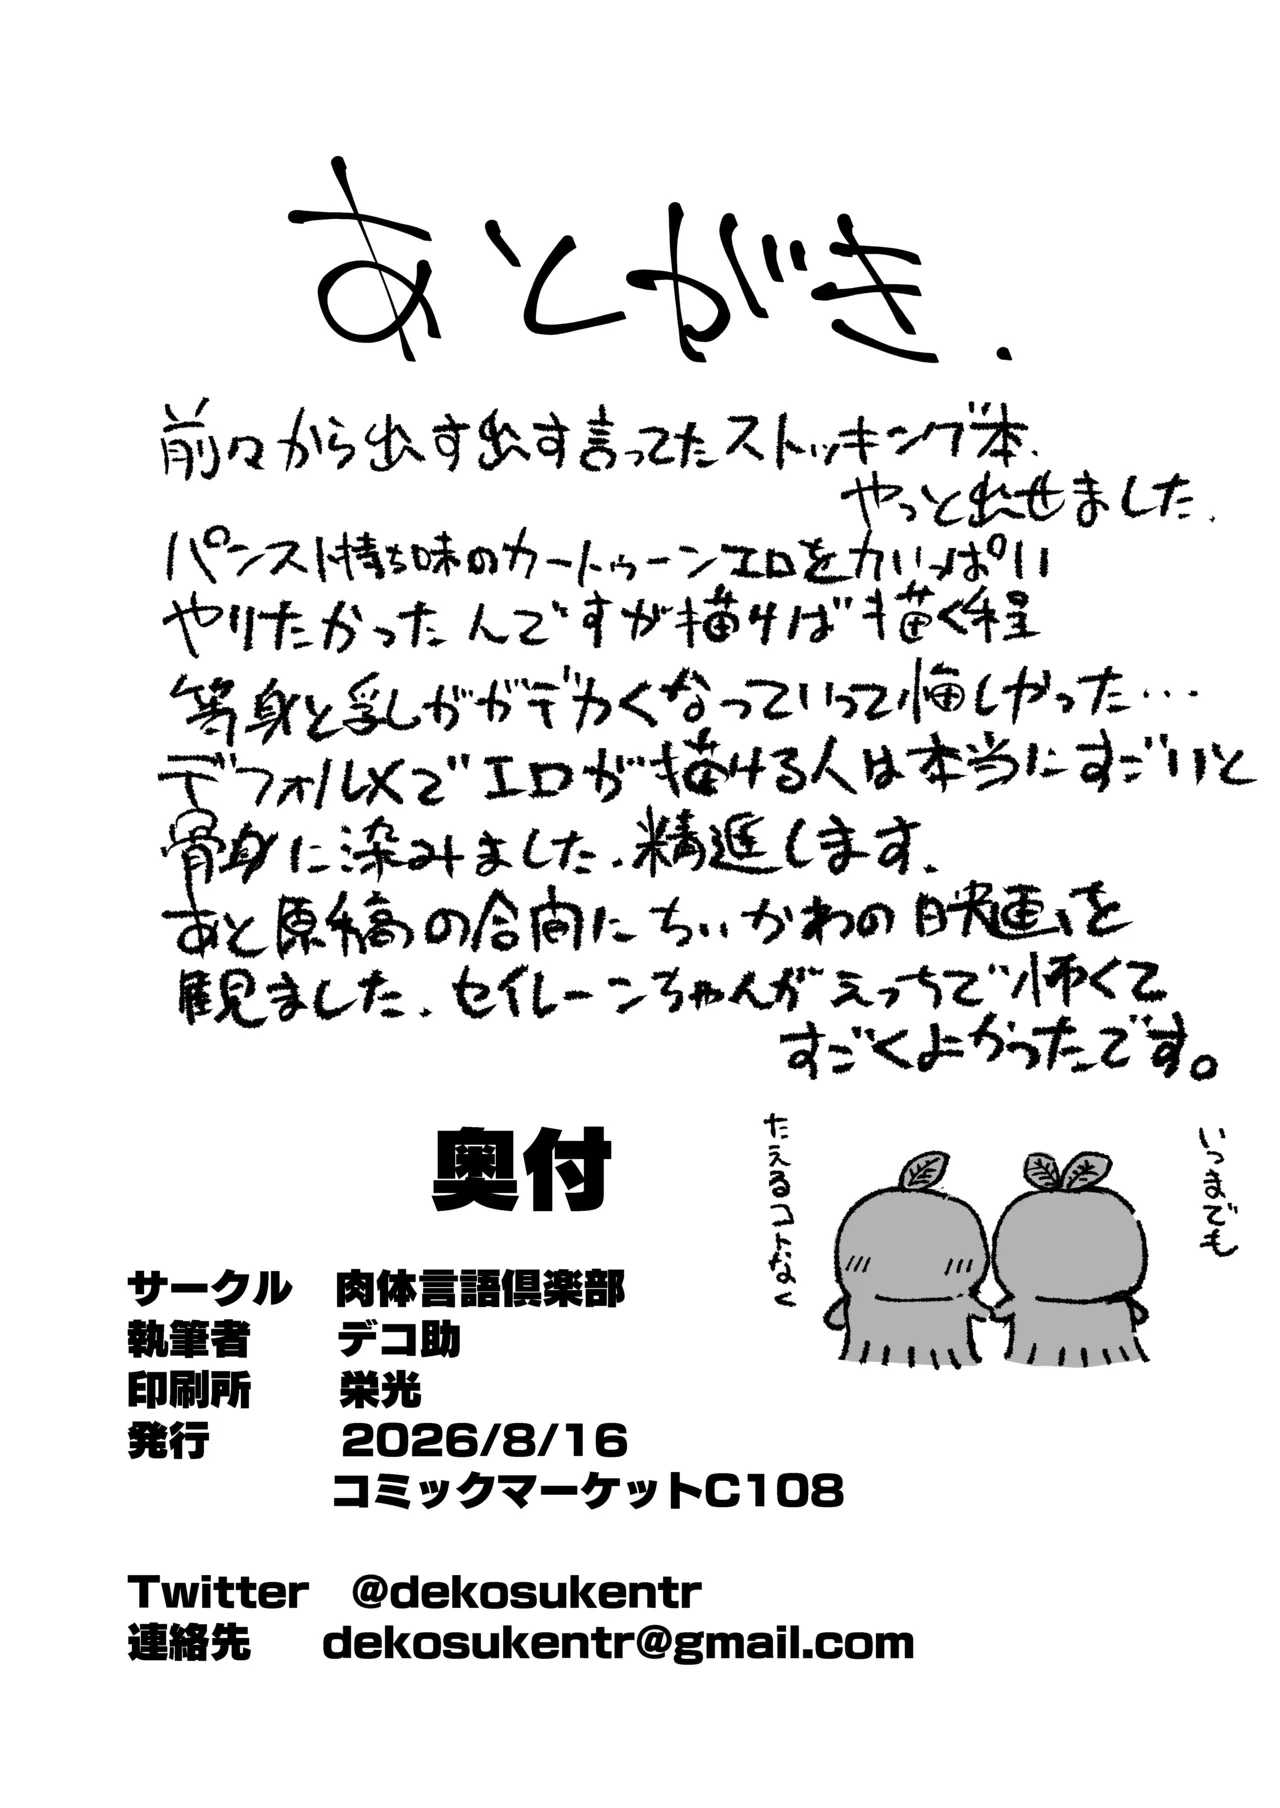 あとがき.
前々から出す出す言ってたストッキング本.
やっと出せました.
パンスト持ち味のカートゥーンエロを力いっぱい
やりたかったんですが描けば描く程
等身と乳がガデカくなっていって悔しかった…
デフォルメでエロが描ける人は本当にすごいと
骨身に染みました.精進します.
あと原稿の合間にちいかわの映画を
観ました.セイレーンちゃんがえっちで怖くて
すごくよかったです。
いつまでも
たえるコトなく
奥付
サークル 肉体言語倶楽部
執筆者 デコ助
印刷所 栄光
発行 2026/8/16
コミックマーケットC108
Twitter @dekosukentr
連絡先 dekosukentr@gmail.com